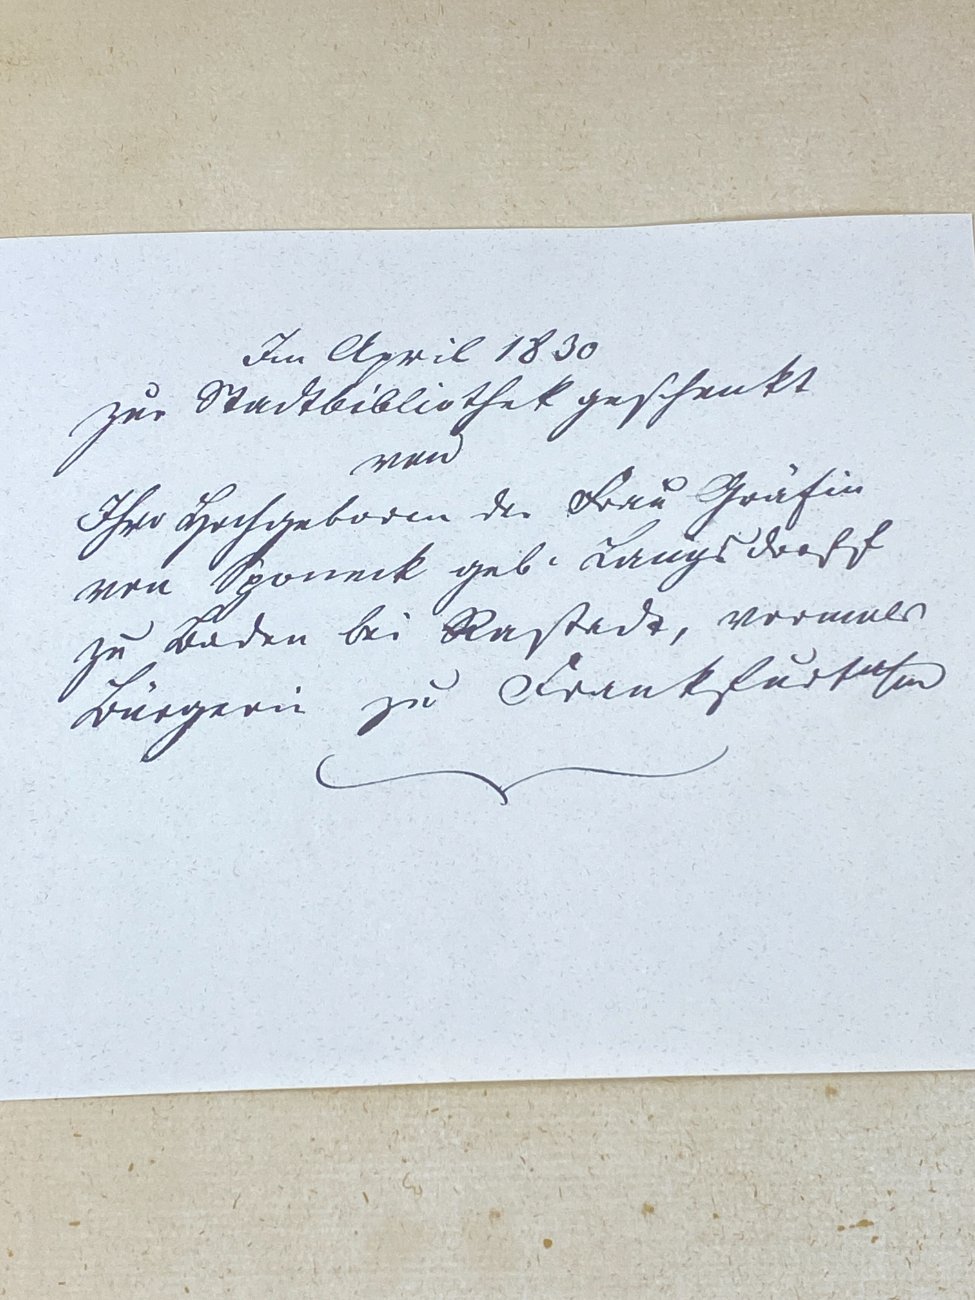 Im April 1830
zur Stadtbibliothek geschenkt
von
Ihro Hochgeborn der Frau Gräfin
von Sponeck geb. Langsdorff
zu Baden bei Rastadt, vormals
Bürgerin zu Frankfurt a/m